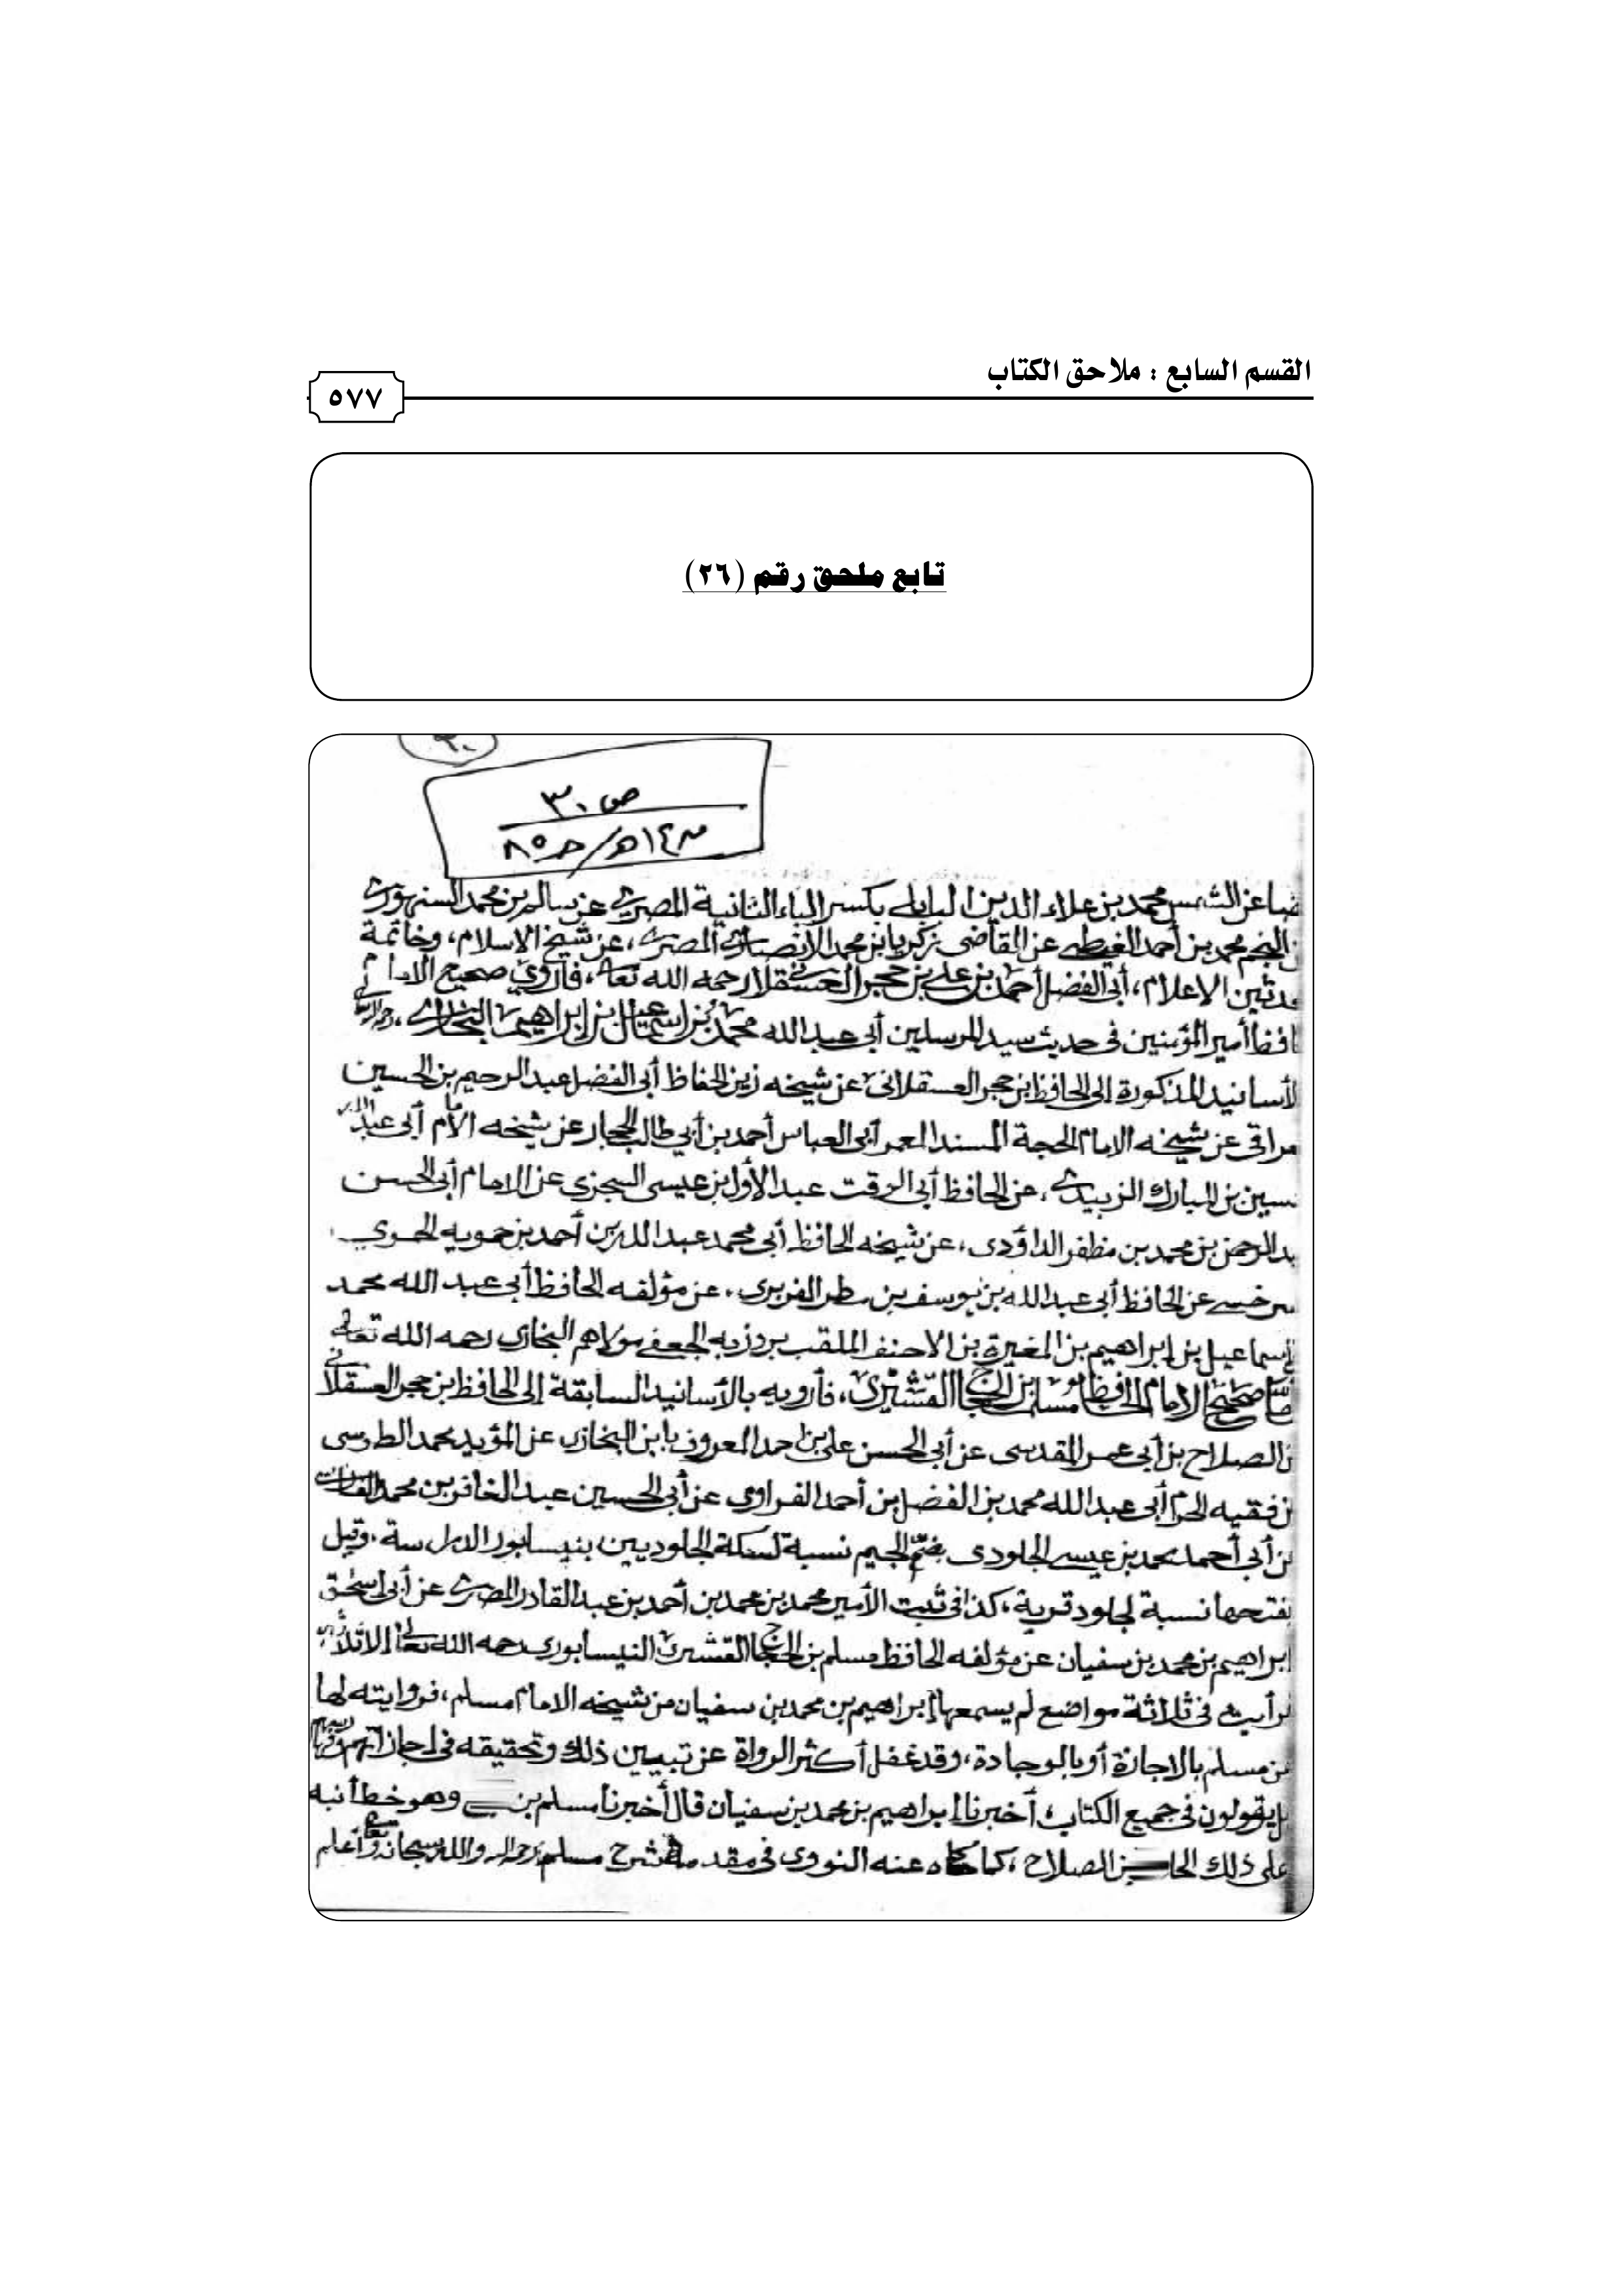 القسم السابع : ملاحق الكتاب
٥٧٧
تابع ملحق رقم (٢٦)
ص ٣٠
عن الشمس محمد بن علاء الدين البابلي بكسر الباء الثانية المصري عن سالم بن محمد السنهوري
النجم محمد بن أحمد الغيطي عن القاضي زكريا بن محمد الأنصاري المصري، عن شيخ الاسلام، وخاتمة
الاعلام، أبى الفضل أحمد بن علي بن حجر العسقلاني رحمه الله تعالى، فأروي صحيح الامام
أمير المؤمنين فى حديث سيد المرسلين أبى عبد الله محمد بن اسماعيل بن ابراهيم البخاري،
الأسانيد المذكورة إلى الحافظ ابن حجر العسقلانى عن شيخه زين الحفاظ أبى الفضل عبد الرحيم بن الحسين
عن شيخه الامام الحجة المسند المعمر أبى العباس أحمد بن أبي طالب الحجار عن شيخه الامام أبى عبد الله
بن المبارك الزبيدي، عن الحافظ أبى الوقت عبد الأول بن عيسى السجزي عن الامام أبى الحسن
بن محمد بن مظفر الداؤدى، عن شيخه الحافظ أبى محمد عبد الله بن أحمد بن حمويه الحموي
عن الحافظ أبى عبد الله بن يوسف بن مطر الفربرى، عن مؤلفه الحافظ أبى عبد الله محمد
إسماعيل بن ابراهيم بن المغيرة بن الاحنف الملقب بردزبه الجعفي مولاهم البخاري رحمه الله تعالى
صحيح الامام الحافظ مسلم بن الحجاج القشيري، فأرويه بالأسانيد السابقة إلى الحافظ ابن حجر العسقلاني
الصلاح بن أبى عمر المقدسى عن أبى الحسن على بن أحمد المعروف بابن البخاري عن المؤيد محمد الطوسى
فقيه الحرم أبى عبد الله محمد بن الفضل بن أحمد الفراوي عن أبى الحسين عبد الغافر بن محمد الفارسي
أبى أحمد محمد بن عيسى الجلودى بضم الجيم نسبة لسكة الجلوديين بنيسابور، وقيل
بفتحها نسبة لجلود قرية، كذا فى ثبت الأمير محمد بن محمد بن أحمد بن عبد القادر المصري عن أبى اسحٰق
ابراهيم بن محمد بن سفيان عن مؤلفه الحافظ مسلم بن الحجاج القشيري النيسابوري رحمه الله تعالى إلا
فى ثلاثة مواضع لم يسمعها إبراهيم بن محمد بن سفيان من شيخه الامام مسلم، فروايته لها
عن مسلم بالاجازة أو بالوجادة، وقد غفل أكثر الرواة عن تبيين ذلك وتحقيقه فى إجازاتهم
بل يقولون فى جميع الكتاب، أخبرنا ابراهيم بن محمد بن سفيان قال أخبرنا مسلم وهو خطأ نبه
على ذلك ابن الصلاح، كما حكاه عنه النووى فى مقدمة شرح مسلم والله سبحانه وتعالى أعلم